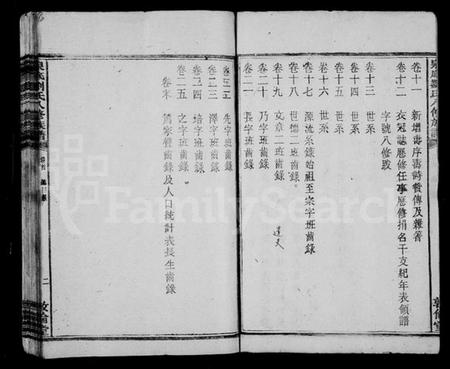 卷十一　新增壽序壽詩賛傳及雜著
卷十二　衣冠誌歷修任事歷修捐名干支紀年表領譜
字號八修跋
卷十三　世系
卷十四　世系
卷十五　世系
卷十六　世系
卷十七　源流系錄始祖至宗字班齒錄
卷十八　世德二班齒錄
卷十九　文章二班齒錄
卷二十　乃字班齒錄
卷二一　長字班齒錄
卷二二　先字班齒錄
卷二三　澤字班齒錄
卷二四　培字班齒錄
卷二五　之字班齒錄
卷末　篤家聲齒錄及人口統計表長生齒錄
二
敦倫堂
FamilySearch